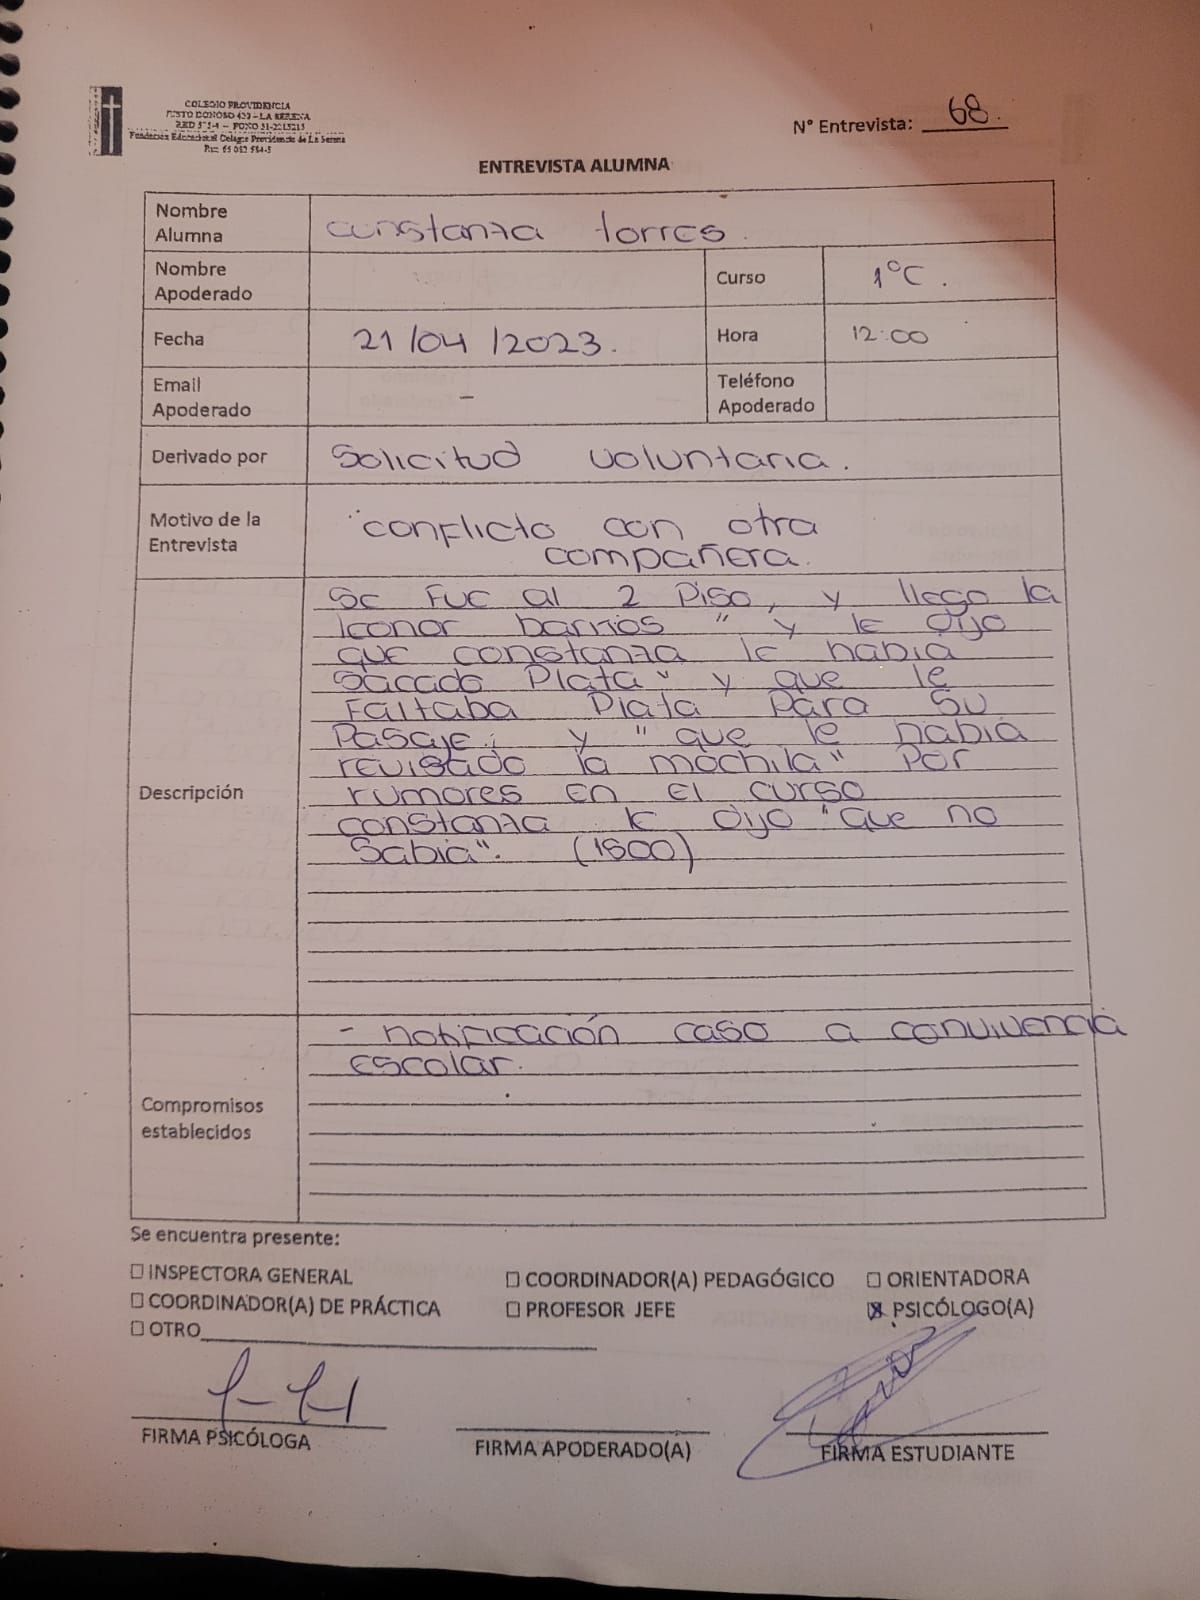 COLEGIO PROVIDENCIA
JUSTO DONOSO 420 – LA SERENA
Fundación Educacional Colegio Providencia de La Serena
N° Entrevista: 68.
ENTREVISTA ALUMNA
Nombre Alumna
Constanza torres.
Nombre Apoderado
Curso
1°C.
Fecha
21/04/2023.
Hora
12:00
Email Apoderado
-
Teléfono Apoderado
Derivado por
Solicitud voluntaria.
Motivo de la Entrevista
conflicto con otra
compañera.
Descripción
Se fue al 2 Piso, y llego la
leonor barrios " y le dijo
que constanza le habia
sacado Plata" y que le
Faltaba Plata Para su
Pasaje; y "que le habia
revisado la mochila" Por
rumores en el curso
constanza le dijo "que no
Sabia". (1800)
Compromisos establecidos
- notificación caso a convivencia
escolar.
Se encuentra presente:
☐ INSPECTORA GENERAL ☐ COORDINADOR(A) PEDAGÓGICO ☐ ORIENTADORA
☐ COORDINADOR(A) DE PRÁCTICA ☐ PROFESOR JEFE ☒ PSICÓLOGO(A)
☐ OTRO
FIRMA PSICÓLOGA FIRMA APODERADO(A) FIRMA ESTUDIANTE